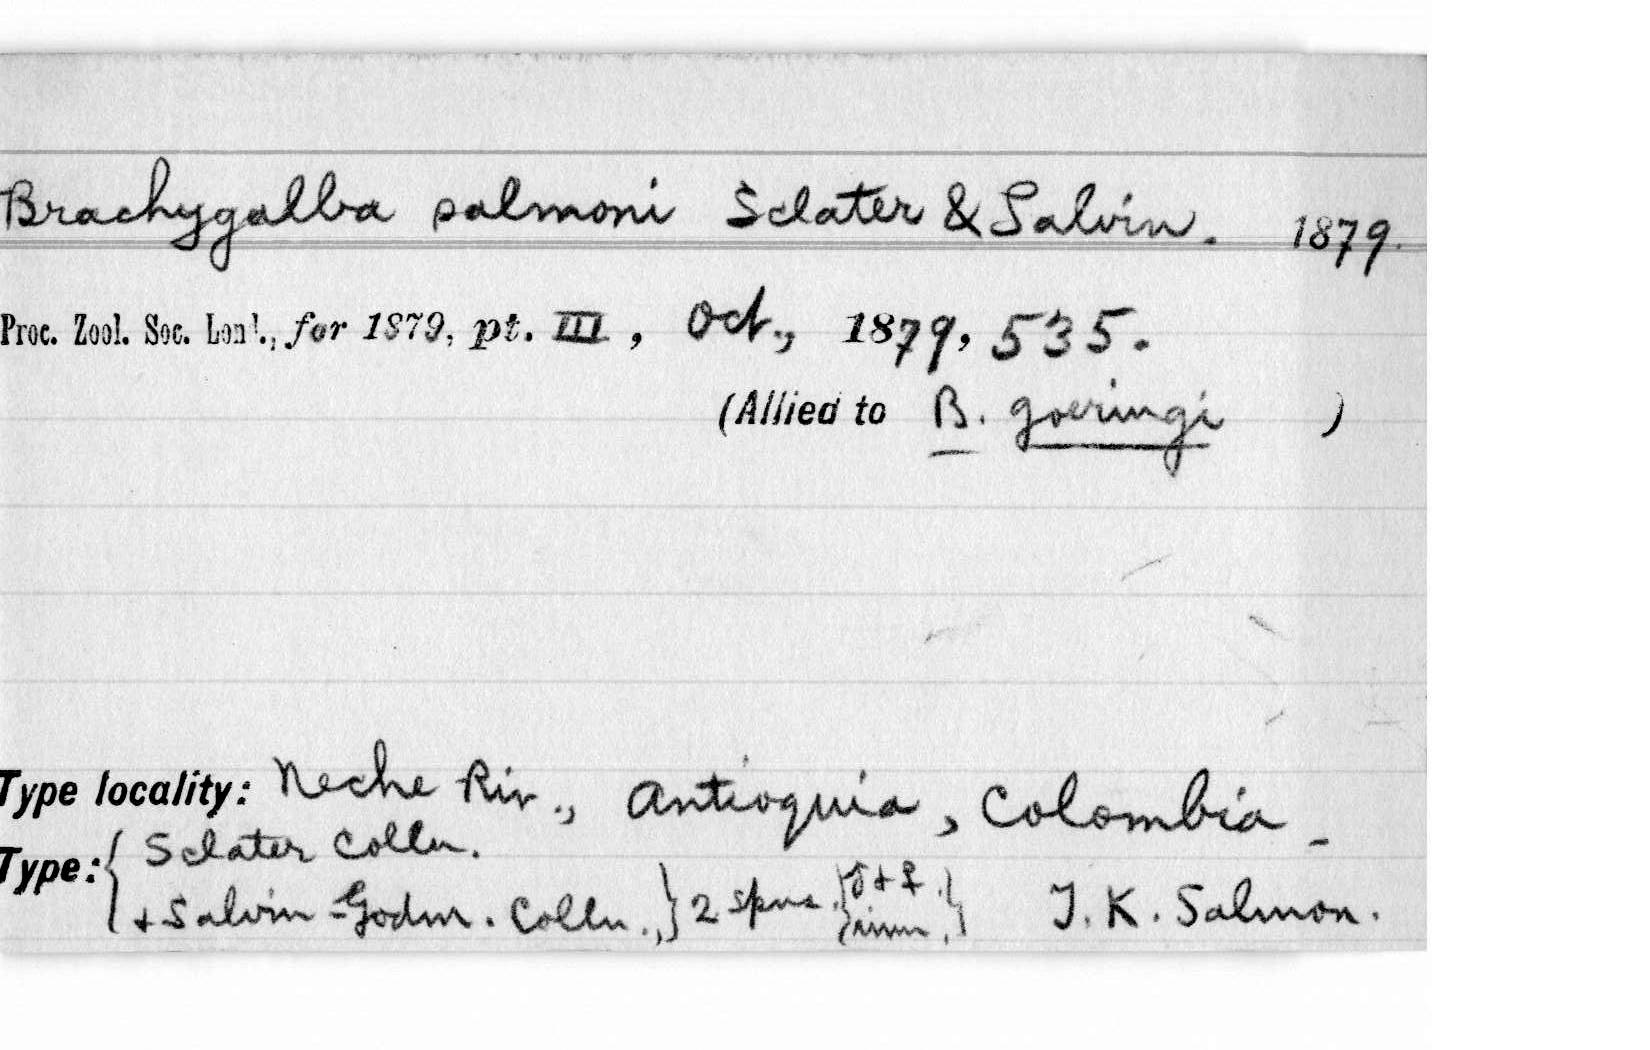 Brachygalba salmoni Sclater & Salvin. 1879.
Proc. Zool. Soc. Lond., for 1879, pt. III, Oct., 1879, 535.
(Allied to B. goeringi )
Type locality: Neche Riv., Antioquia, Colombia.
Type: { Sclater Colln.
+ Salvin-Godm. Colln., } 2 spns. { ♂ + ♀. imm. } T. K. Salmon.